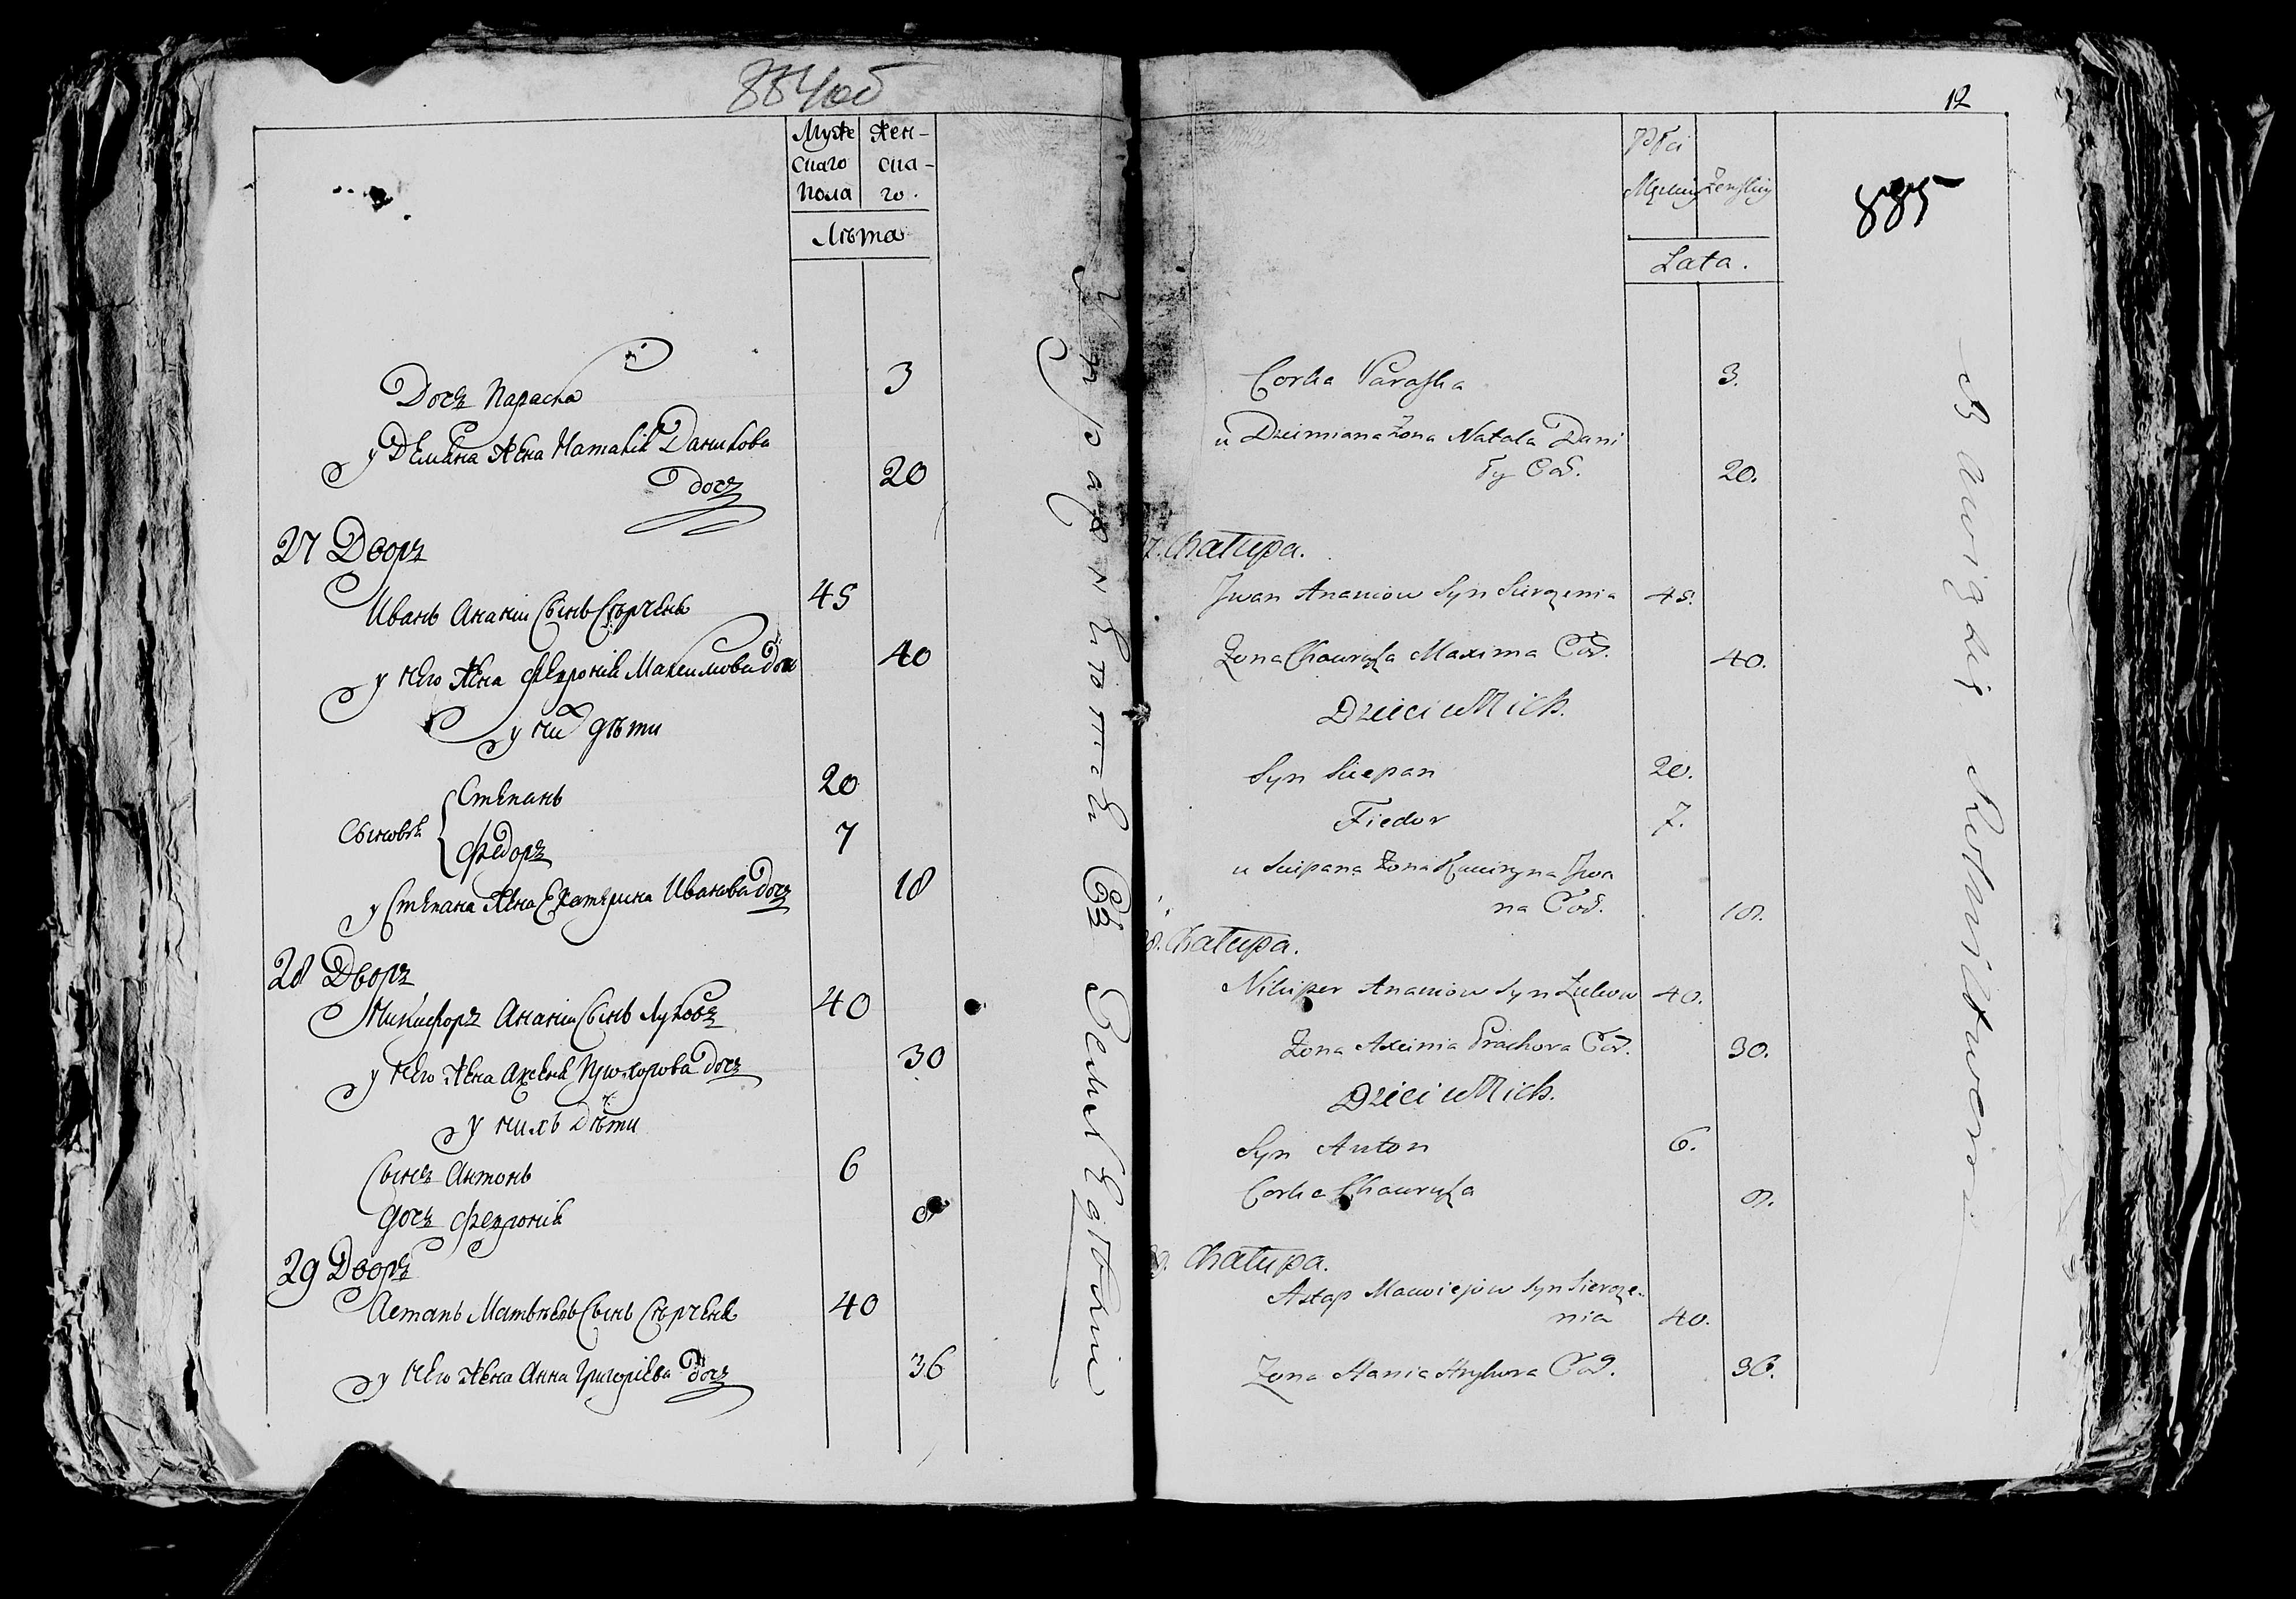 884об
Муже Жен-
скаго ска-
пола го.
Лѣта
Дочъ Параска 3
у Демяна жена Наталія Данилова
дочъ 20
27 Дворъ
Иванъ Ананіи Сынъ Сѣрченя 45
у него жена Февронія Макеимова Доч 40
у них дѣти
Сыновья Степанъ 20
Федоръ 7
у Степана жена Екатерина Иванова Дочъ 18
28 Дворъ
Никифоръ Ананіи Сынъ Луковъ 40
у него жена Аксеня Прохорова дочъ 30
у нихъ Дѣти
Сынъ Антонъ 6
дочъ Февронія 8
29 Дворъ
Астапъ Матвѣевъ Сынъ Сѣрченя 40
у него жена Анна Григоріева Дочъ 36
12
885
Płci
Męzkiey Zenskiey
Lata.
Corka Paraska 3.
u Dziemiana Zona Natala Dani
ły Cod. 20.
27. Chałupa.
Jwan Ananiow Syn Sierczenia 45.
Zona Chawruza Maxima Cod. 40.
Dzieci u Nich.
Syn Sciepan 20.
Fiedor 7.
u Sciepana Zona Kaciryna Jwa
na Cod. 18.
28. Chałupa.
Nikiper Ananiow Syn Zukow 40.
Zona Axinia Prachora Cod. 30.
Dzieci u Nich.
Syn Anton 6.
Corka Chawruza 8.
29. Chałupa.
Astap Maciejow Syn Siercze-
nia 40.
Zona Hania Hryhora Cod. 36.